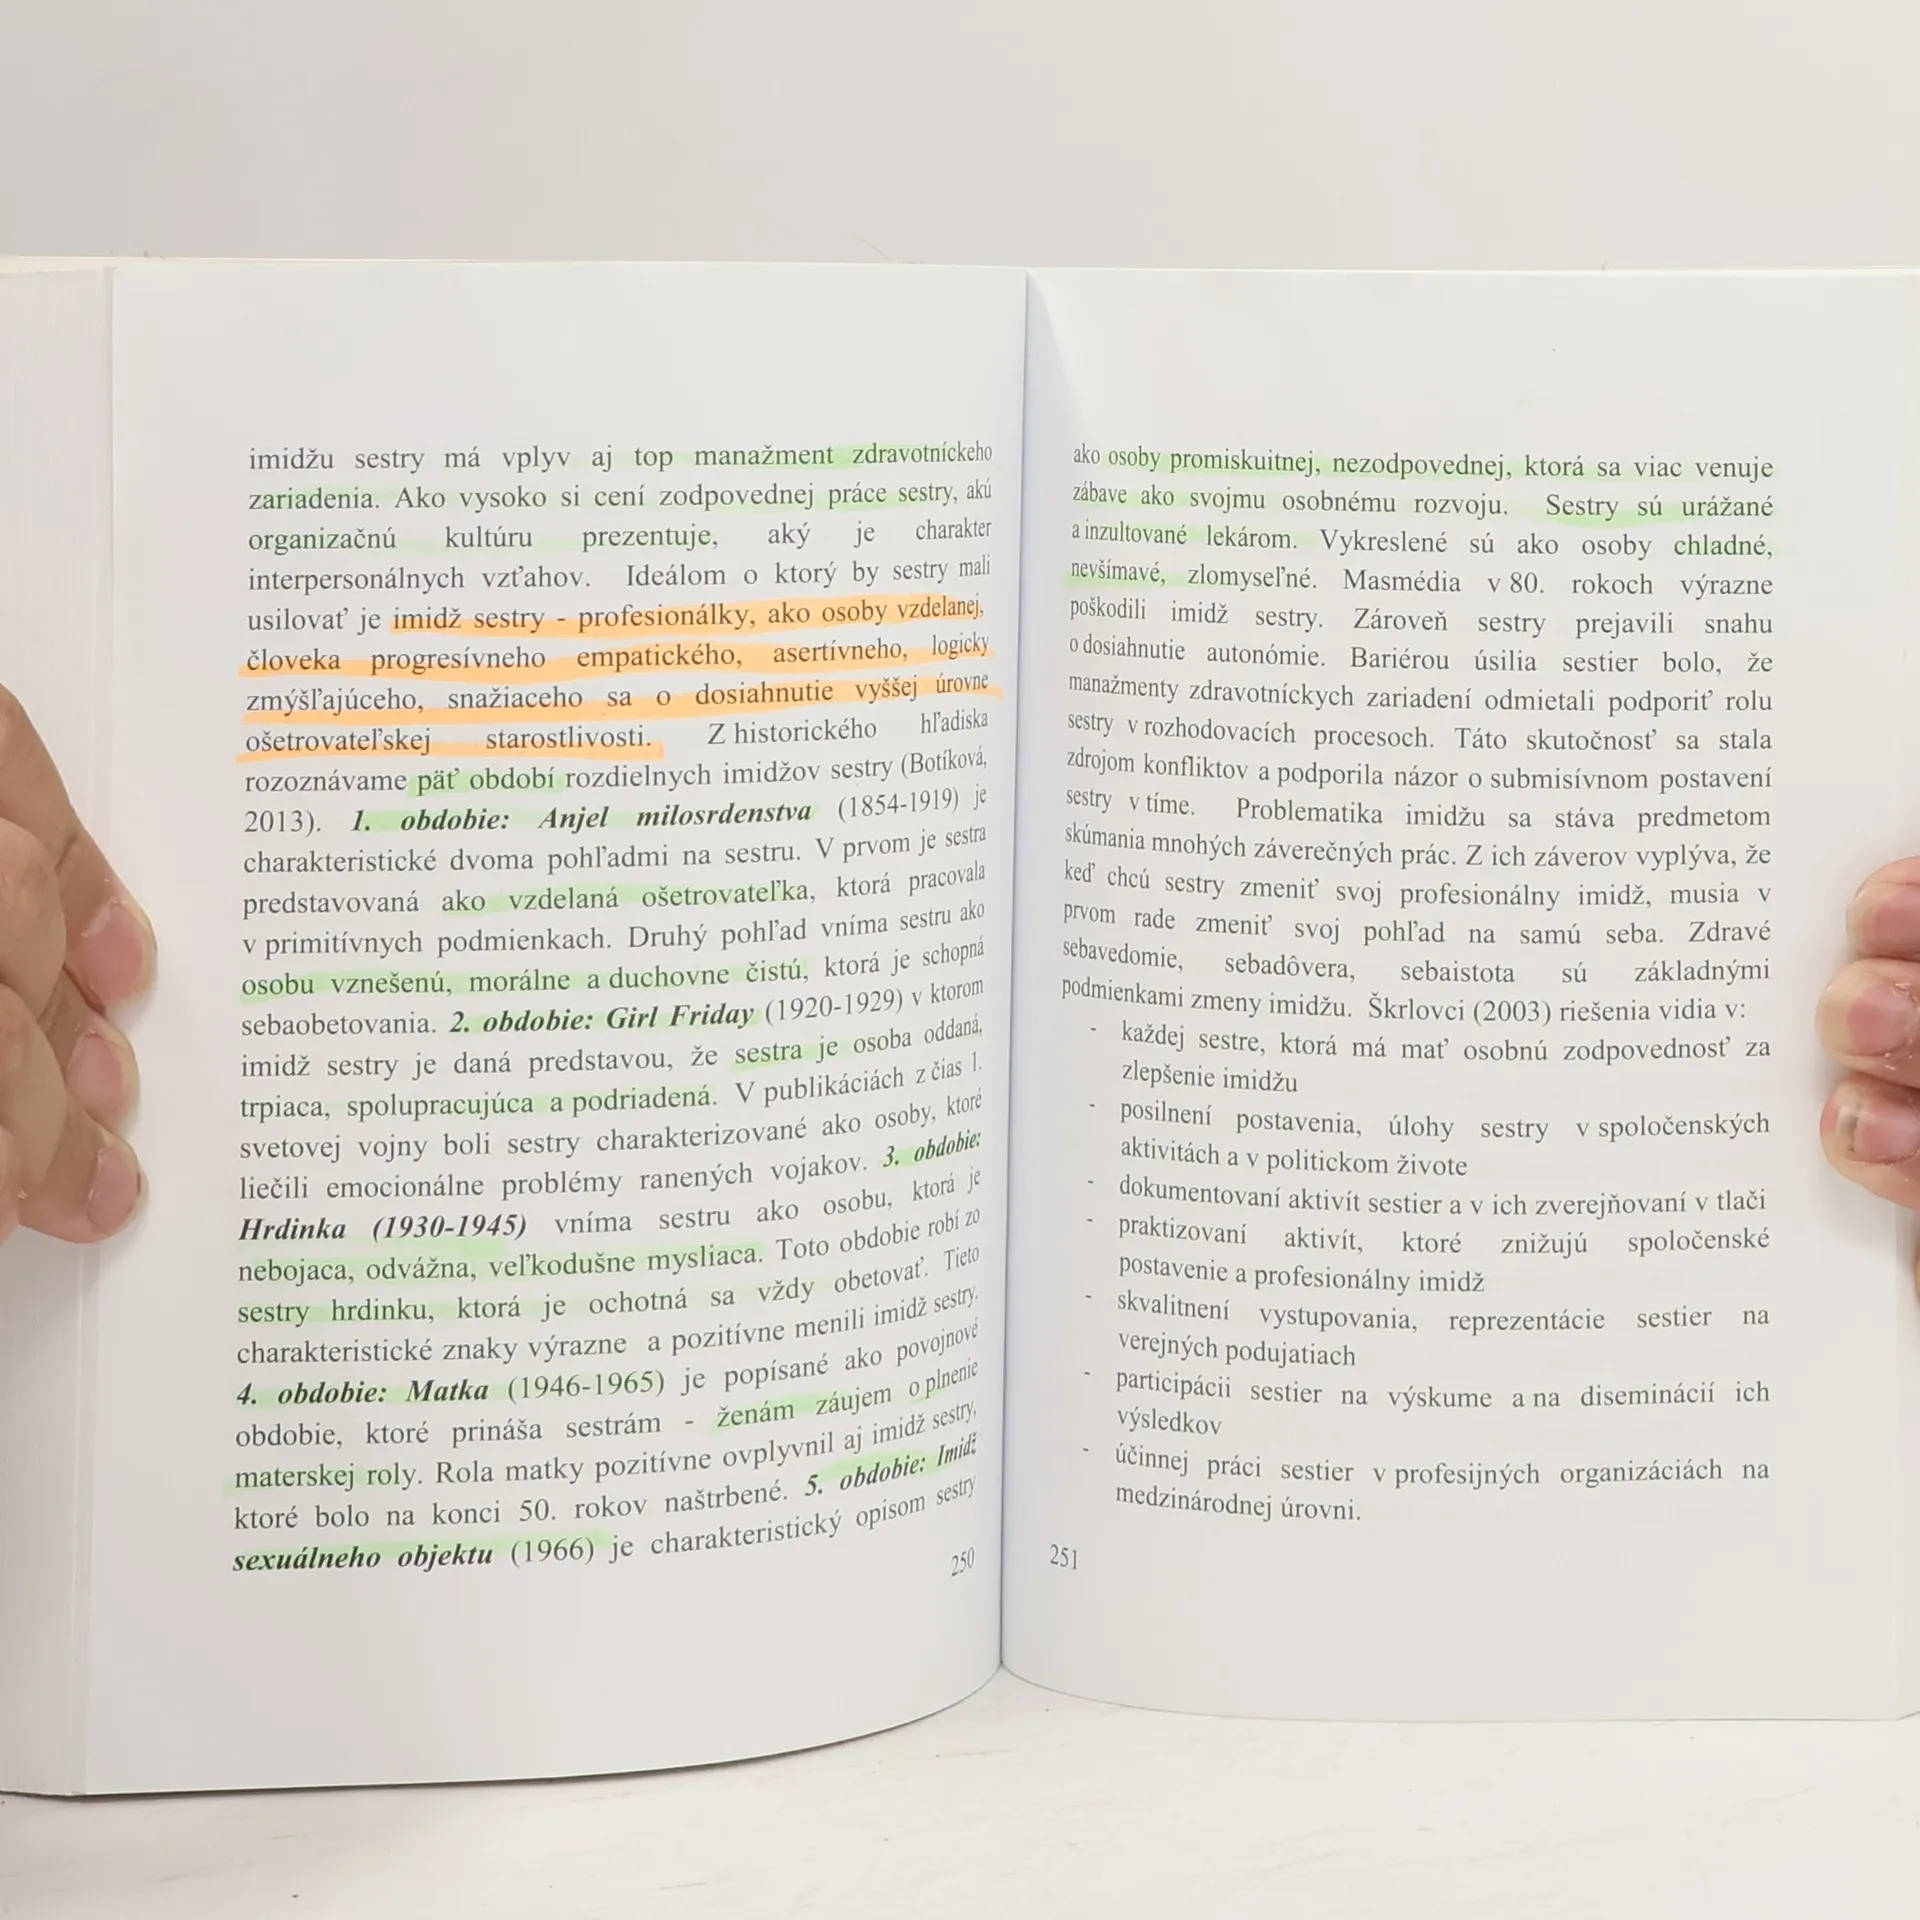 imidžu sestry má vplyv aj top manažment zdravotníckeho
zariadenia. Ako vysoko si cení zodpovednej práce sestry, akú
organizačnú kultúru prezentuje, aký je charakter
interpersonálnych vzťahov. Ideálom o ktorý by sestry mali
usilovať je imidž sestry - profesionálky, ako osoby vzdelanej,
človeka progresívneho empatického, asertívneho, logicky
zmýšľajúceho, snažiaceho sa o dosiahnutie vyššej úrovne
ošetrovateľskej starostlivosti. Z historického hľadiska
rozoznávame päť období rozdielnych imidžov sestry (Botíková,
2013). 1. obdobie: Anjel milosrdenstva (1854-1919) je
charakteristické dvoma pohľadmi na sestru. V prvom je sestra
predstavovaná ako vzdelaná ošetrovateľka, ktorá pracovala
v primitívnych podmienkach. Druhý pohľad vníma sestru ako
osobu vznešenú, morálne a duchovne čistú, ktorá je schopná
sebaobetovania. 2. obdobie: Girl Friday (1920-1929) v ktorom
imidž sestry je daná predstavou, že sestra je osoba oddaná,
trpiaca, spolupracujúca a podriadená. V publikáciách z čias 1.
svetovej vojny boli sestry charakterizované ako osoby, ktoré
liečili emocionálne problémy ranených vojakov. 3. obdobie:
Hrdinka (1930-1945) vníma sestru ako osobu, ktorá je
nebojaca, odvážna, veľkodušne mysliaca. Toto obdobie robí zo
sestry hrdinku, ktorá je ochotná sa vždy obetovať. Tieto
charakteristické znaky výrazne a pozitívne menili imidž sestry.
4. obdobie: Matka (1946-1965) je popísané ako povojnové
obdobie, ktoré prináša sestrám - ženám záujem o plnenie
materskej roly. Rola matky pozitívne ovplyvnil aj imidž sestry,
ktoré bolo na konci 50. rokov naštrbené. 5. obdobie: Imidž
sexuálneho objektu (1966) je charakteristický opisom sestry
250
ako osoby promiskuitnej, nezodpovednej, ktorá sa viac venuje
zábave ako svojmu osobnému rozvoju. Sestry sú urážané
a inzultované lekárom. Vykreslené sú ako osoby chladné,
nevšímavé, zlomyseľné. Masmédia v 80. rokoch výrazne
poškodili imidž sestry. Zároveň sestry prejavili snahu
o dosiahnutie autonómie. Bariérou úsilia sestier bolo, že
manažmenty zdravotníckych zariadení odmietali podporiť rolu
sestry v rozhodovacích procesoch. Táto skutočnosť sa stala
zdrojom konfliktov a podporila názor o submisívnom postavení
sestry v tíme. Problematika imidžu sa stáva predmetom
skúmania mnohých záverečných prác. Z ich záverov vyplýva, že
keď chcú sestry zmeniť svoj profesionálny imidž, musia v
prvom rade zmeniť svoj pohľad na samú seba. Zdravé
sebavedomie, sebadôvera, sebaistota sú základnými
podmienkami zmeny imidžu. Škrlovci (2003) riešenia vidia v:
- každej sestre, ktorá má mať osobnú zodpovednosť za
zlepšenie imidžu
- posilnení postavenia, úlohy sestry v spoločenských
aktivitách a v politickom živote
- dokumentovaní aktivít sestier a v ich zverejňovaní v tlači
- praktizovaní aktivít, ktoré znižujú spoločenské
postavenie a profesionálny imidž
- skvalitnení vystupovania, reprezentácie sestier na
verejných podujatiach
- participácii sestier na výskume a na diseminácií ich
výsledkov
- účinnej práci sestier v profesijných organizáciách na
medzinárodnej úrovni.
251